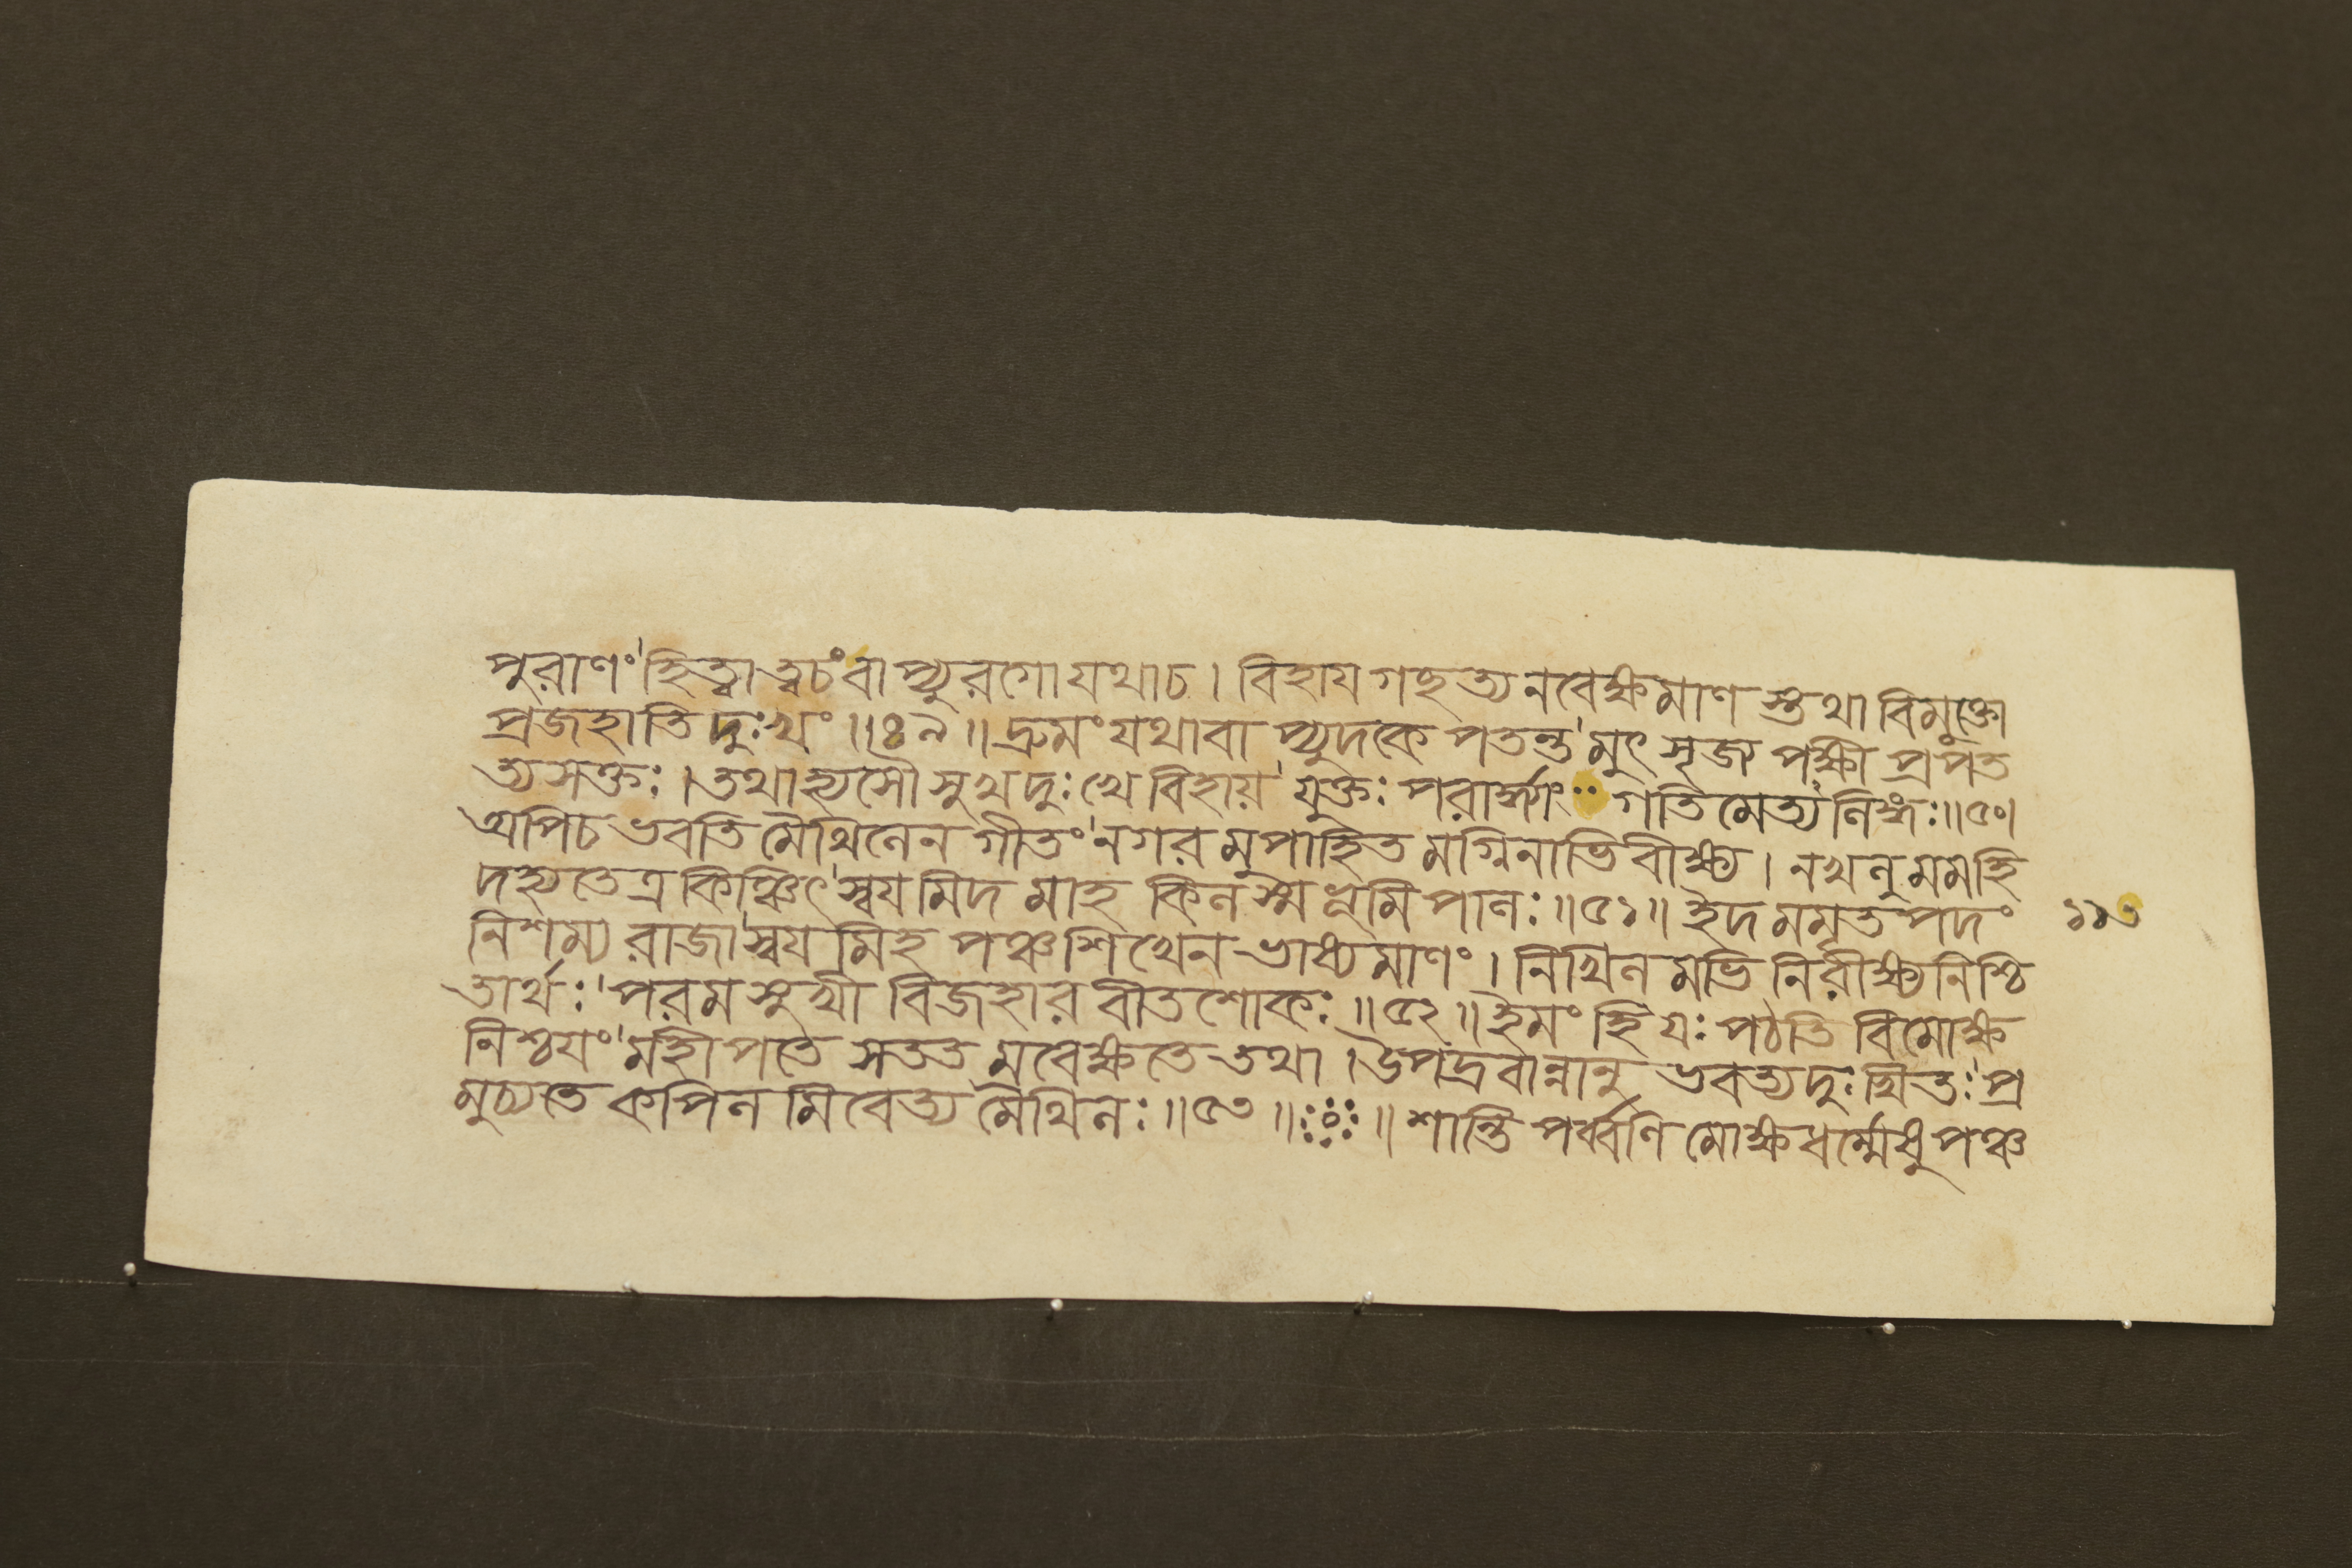 পুরাণং'হিত্বা ত্বচং বাপ্যুরগো যথাচ। বিহায গছত্যনবেক্ষমাণ স্তথা বিমুক্তো
প্রজহাতি দুঃখং॥৪৯॥ দ্রুমং যথাবাপ্যুদকে পতন্ত'মুৎসৃজ্য পক্ষী প্রপত
ত্যসক্তঃ।তথাহ্যসৌ সুখদুঃখে বিহায়'যুক্তঃ পরার্দ্ধ্যাং গতিমেত্য নিহ্মঃ॥৫০।
অপিচ ভবতি মৈথিলেন গীতং'নগরমুপাহিত মগ্নিনাভিবীক্ষ্য। নখলু মমহি
দহ্যতেত্র কিঞ্চিৎ'স্বযমিদ মাহ কিল স্ম ভূমিপালঃ॥৫১॥ ইদ মমৃতপদং
১১৩
নিশম্য রাজা'স্বযমিহ পঞ্চশিখেন ভাষ্যমাণং। নিখিল মভিনিরীক্ষ্য নিশ্চি
তার্থঃ'পরমসুখী বিজহার বীতশোকঃ॥৫২॥ ইমং হি যঃ পঠতি বিমোক্ষ
নিশ্চযং'মহীপতে সততমবেক্ষতে তথা।উপদ্রবান্নানুভবত্যদুঃখিতঃ'প্র
মুচ্যতে কপিলমিবেত্য মৈথিলঃ॥৫৩॥ ॥ শান্তিপর্ব্বণি মোক্ষধর্ম্মেষু পঞ্চ